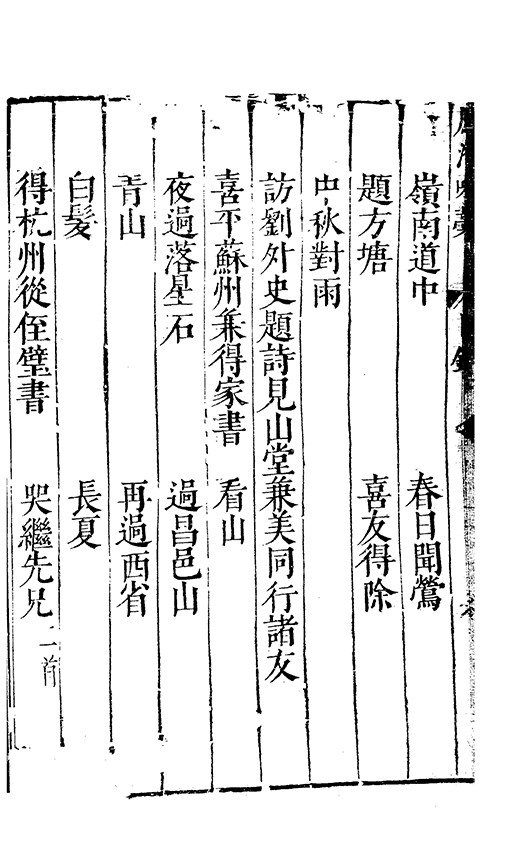 嶺南道中　春日聞鶯
題方塘　喜友得除
中秋對雨
訪劉外史題詩見山堂兼美同行諸友
喜平蘇州兼得家書　看山
夜過落星石　過昌邑山
青山　再過西省
白髮　長夏
得杭州從侄璧書　哭繼先兄二首